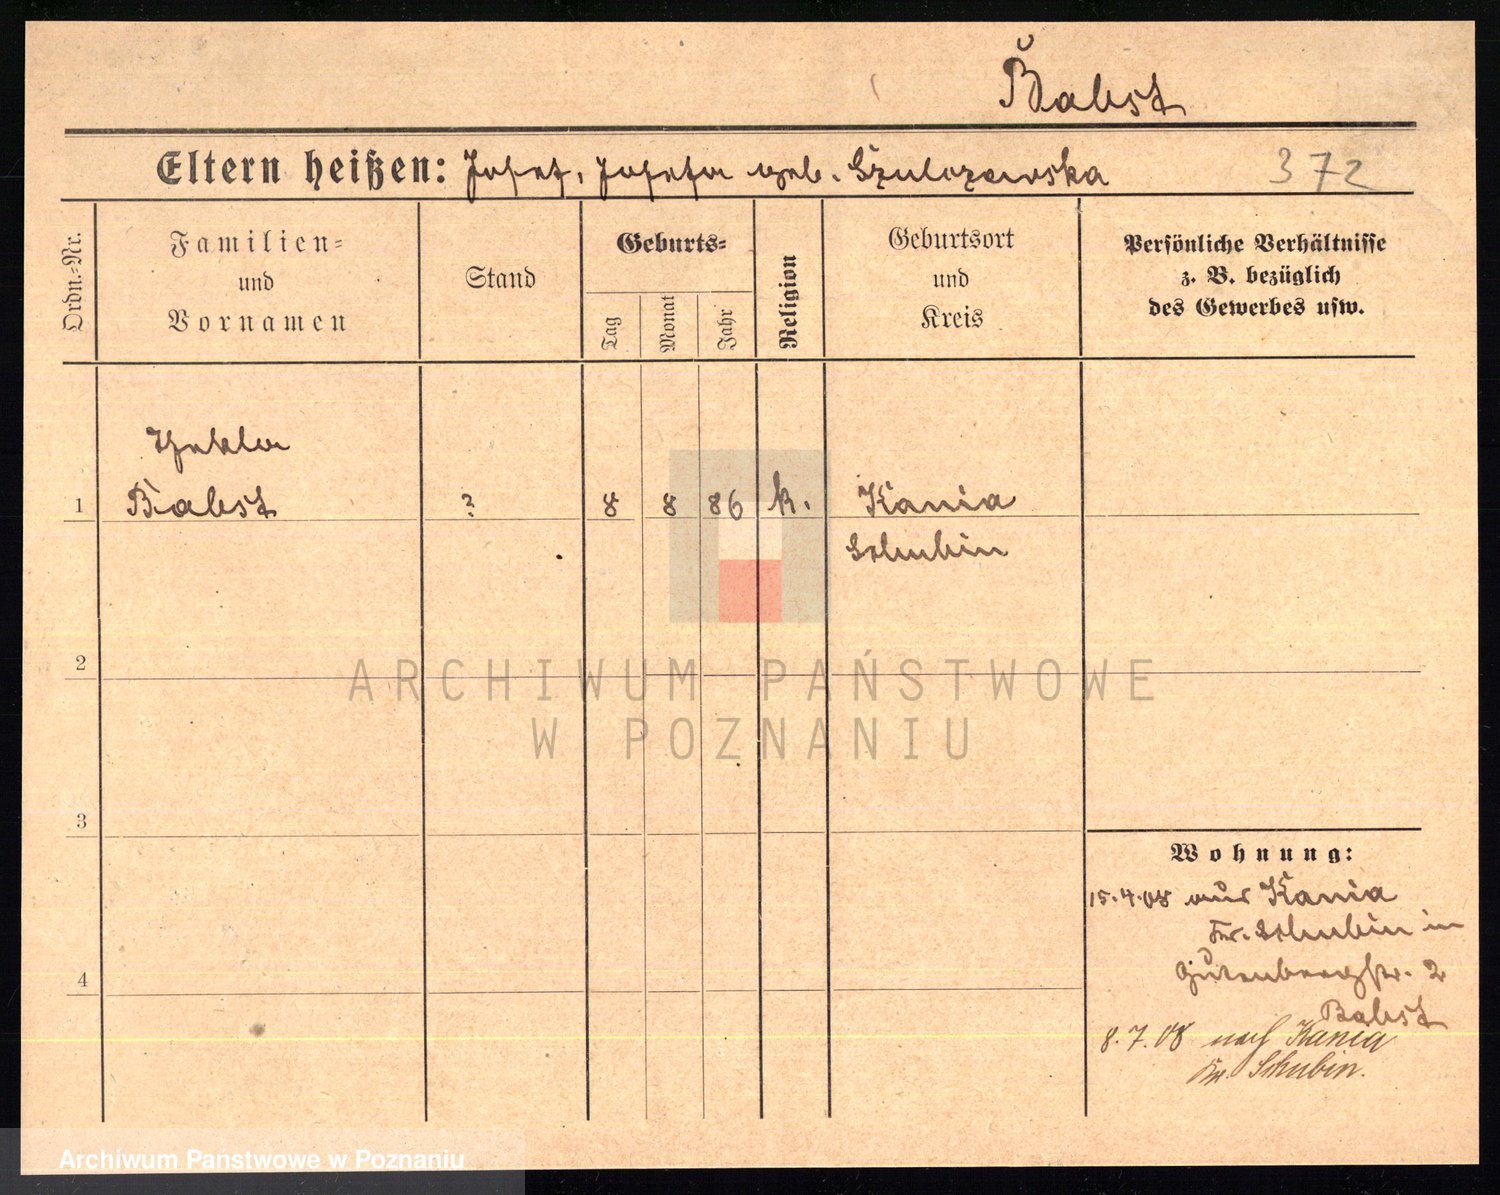 Babst
Eltern heißen: Josef, Josefa geb. Szulczewska 372
Ordn.-Nr.
Familien-
und
Vornamen
Stand
Geburts-
Tag
Monat
Jahr
Religion
Geburtsort
und
Kreis
Persönliche Verhältnisse
z. B. bezüglich
des Gewerbes usw.
Thekla
1 Babst ? 8 8 86 k. Kania
Schubin
2
ARCHIWUM PAŃSTWOWE
W POZNANIU
3
Wohnung:
15.4.08 aus Kania
Kr. Schubin in
4
Gutenbergstr. 2
Babst
8.7.08 nach Kania
Kr. Schubin.
Archiwum Państwowe w Poznaniu